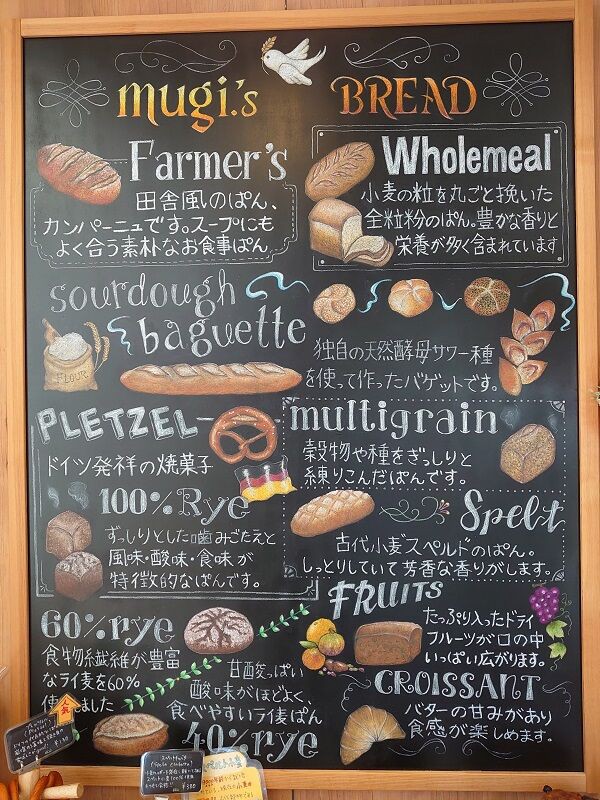 mugi.'s BREAD
Farmer's
田舎風のぱん、
カンパーニュです。スープにも
よく合う素朴なお食事ぱん
Wholemeal
小麦の粒を丸ごと挽いた
全粒粉のぱん。豊かな香りと
栄養が多く含まれています
sourdough
baguette
FLOUR
独自の天然酵母サワー種
を使って作ったバゲットです。
PLETZEL
ドイツ発祥の焼菓子
multigrain
穀物や種をぎっしりと
練りこんだぱんです。
100%Rye
ずっしりとした噛みごたえと
風味・酸味・食味が
特徴的なぱんです。
Spelt
古代小麦スペルドのぱん。
しっとりしていて芳香な香りがします。
60%rye
食物繊維が豊富
ならい麦を60%
ました
FRUITS
たっぷり入ったドライ
フルーツが口の中
いっぱい広がります。
甘酸っぱい
酸味がほどよく、
食べやすいライ麦ぱん
40%rye
CROISSANT
バターの甘みがあり
食感が楽しめます。
人気